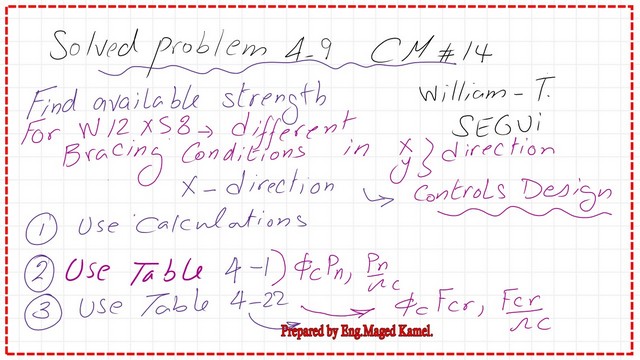 Solved problem 4-9 CM#14
William-T.
SEGUi
Find available strength
For W12X58→ different
Bracing Conditions in x y } direction
X-direction ↳ Controls Design
① Use Calculations
② Use Table 4-1) ϕcPn, Pn/Ωc
③ Use Table 4-22 → ϕcFcr, Fcr/Ωc
Prepared by Eng.Maged Kamel.